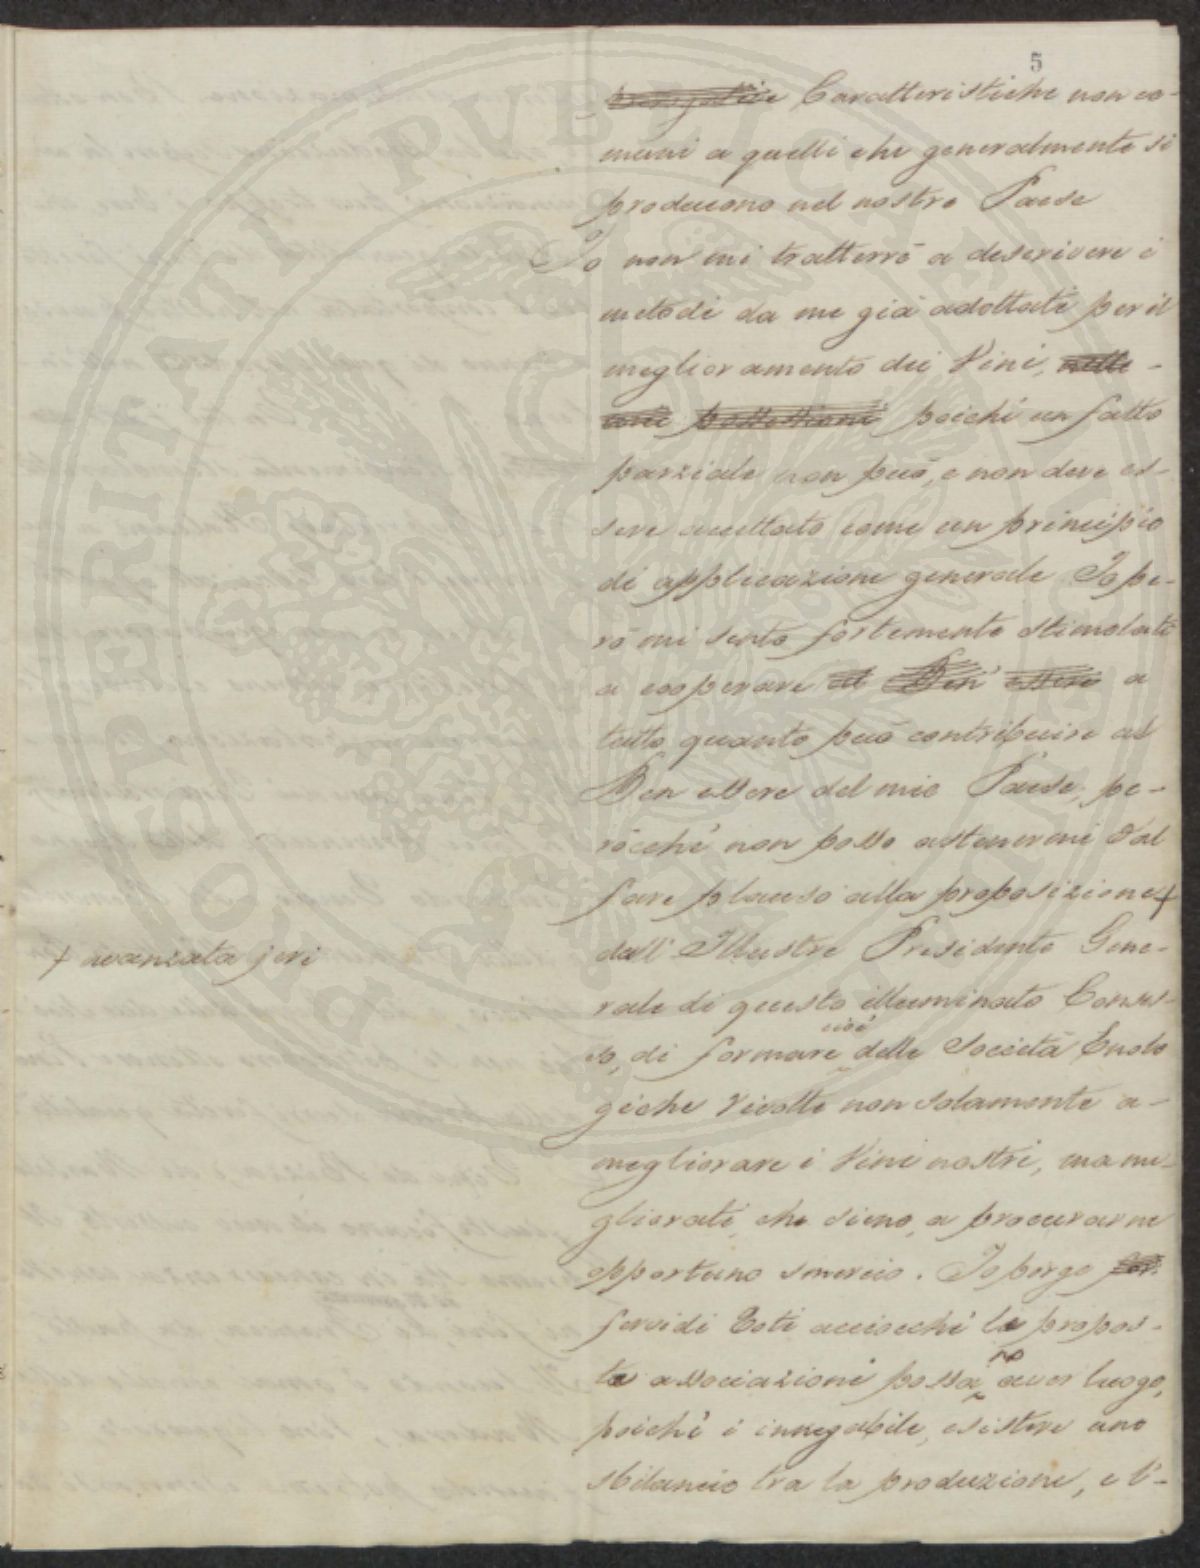 5
Caratteristiche non co-
muni a quelli che generalmente si
producono nel nostro Paese
Io non mi tratterrò a descrivere i
metodi da me già adottati per il
miglioramento dei Vini, nelle -
poichè un fatto
parziale non può, e non deve es-
sere accettato come un principio
di applicazione generale Io pe-
rò mi sento fortemente stimolato
a cooperare al Ben essere a
tutto quanto può contribuire al
Ben essere del mio Paese, pe-
rocchè non posso astenermi dal
fare plauso alla proposizione +
+ avanzata jeri
dall' Illustre Presidente Gene-
rale di questo illuminato Conses-
so, di formare cioè delle Società Enolo
giche rivolte non solamente a-
migliorare i Vini nostri, ma mi-
gliorati, che sieno, a procurarne
opportuno smercio. Io porgo
fervidi Voti acciocchè le propos-
te associazioni possano aver luogo,
poichè è innegabile, esistere uno
sbilancio tra la produzione, e l'-
PROSPERITATI PUBLICAE AUGENDAE